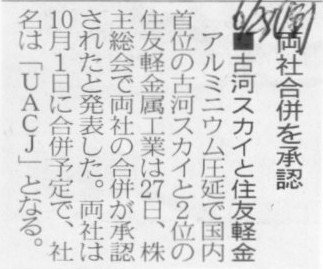 両社合併を承認
■古河スカイと住友軽金
アルミニウム圧延で国内
首位の古河スカイと2位の
住友軽金属工業は27日、株
主総会で両社の合併が承認
されたと発表した。両社は
10月1日に合併予定で、社
名は「UACJ」となる。